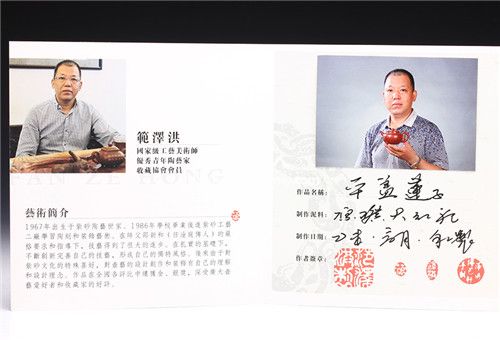 範澤洪
國家級工藝美術師
優秀青年陶藝家
收藏協會會員
FAN ZEHONG
藝術簡介
1967年出生于紫砂陶藝世家。1986年學校畢業後進紫砂工藝
二廠學習陶刻和裝飾藝術。在師父邵新和《百途苑博人》的嚴
格要求和指導下，技藝得到了很大的進步。在扎實的基礎下，
不斷創新完善自己的技藝，形成自己的獨特風格。後來由于對
紫砂文化的特殊喜好，對壺藝的設計創作和裝飾有自己的理解
和設計理念。作品在全國各評比中連獲金、銀獎，深受廣大壺
藝愛好者和收藏家的好評。
作品名稱：平蓋蓮子
制作泥料：大紅袍
制作日期：
作者蓋章：